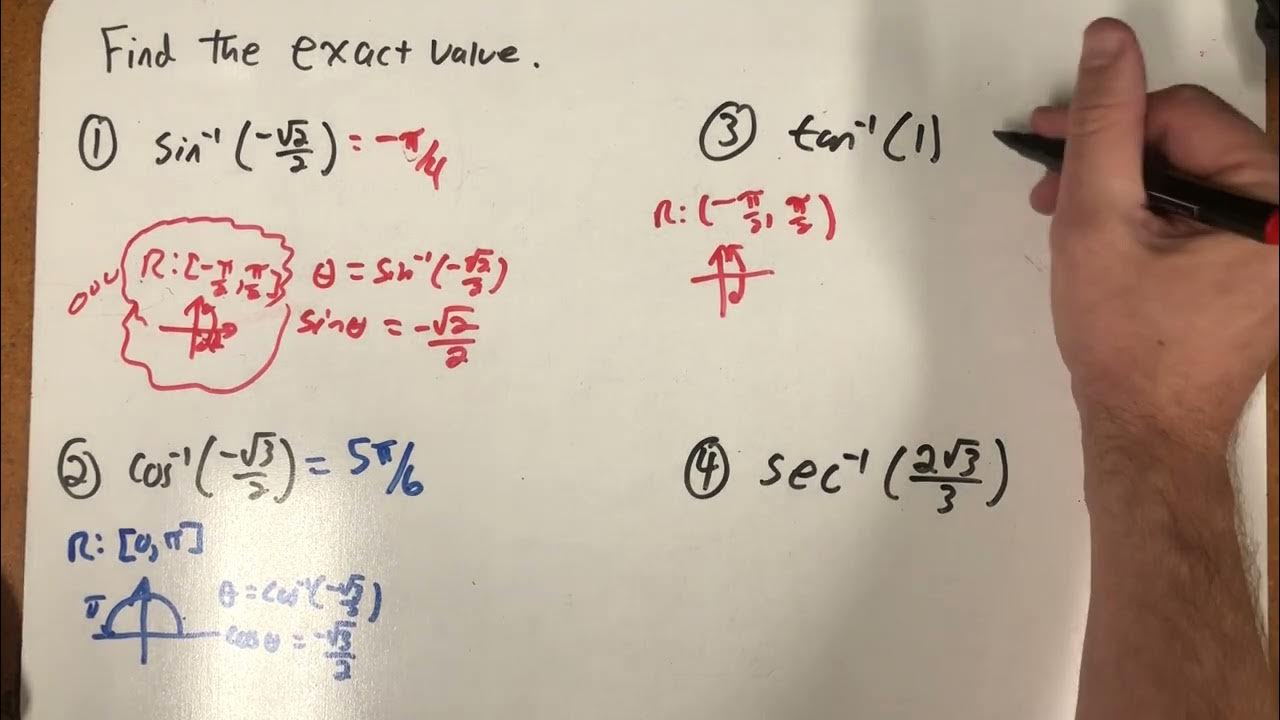 Find the exact value.
① sin⁻¹(-√2/2) = -π/4
R: [-π/2, π/2]
θ = sin⁻¹(-√2/2)
sinθ = -√2/2
② cos⁻¹(-√3/2) = 5π/6
R: [0, π]
π
θ = cos⁻¹(-√3/2)
cos θ = -√3/2
③ tan⁻¹(1)
R: (-π/2, π/2)
④ sec⁻¹(2√3/3)